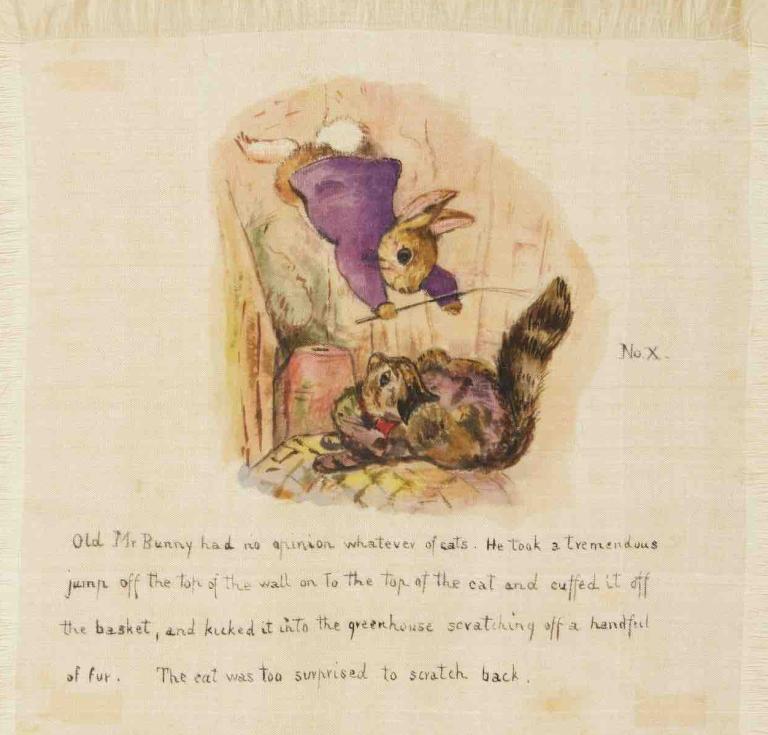 No. X.
Old Mr Bunny had no opinion whatever of cats. He took a tremendous
jump off the top of the wall on to the top of the cat and cuffed it off
the basket, and kicked it into the greenhouse scratching off a handful
of fur. The cat was too surprised to scratch back.